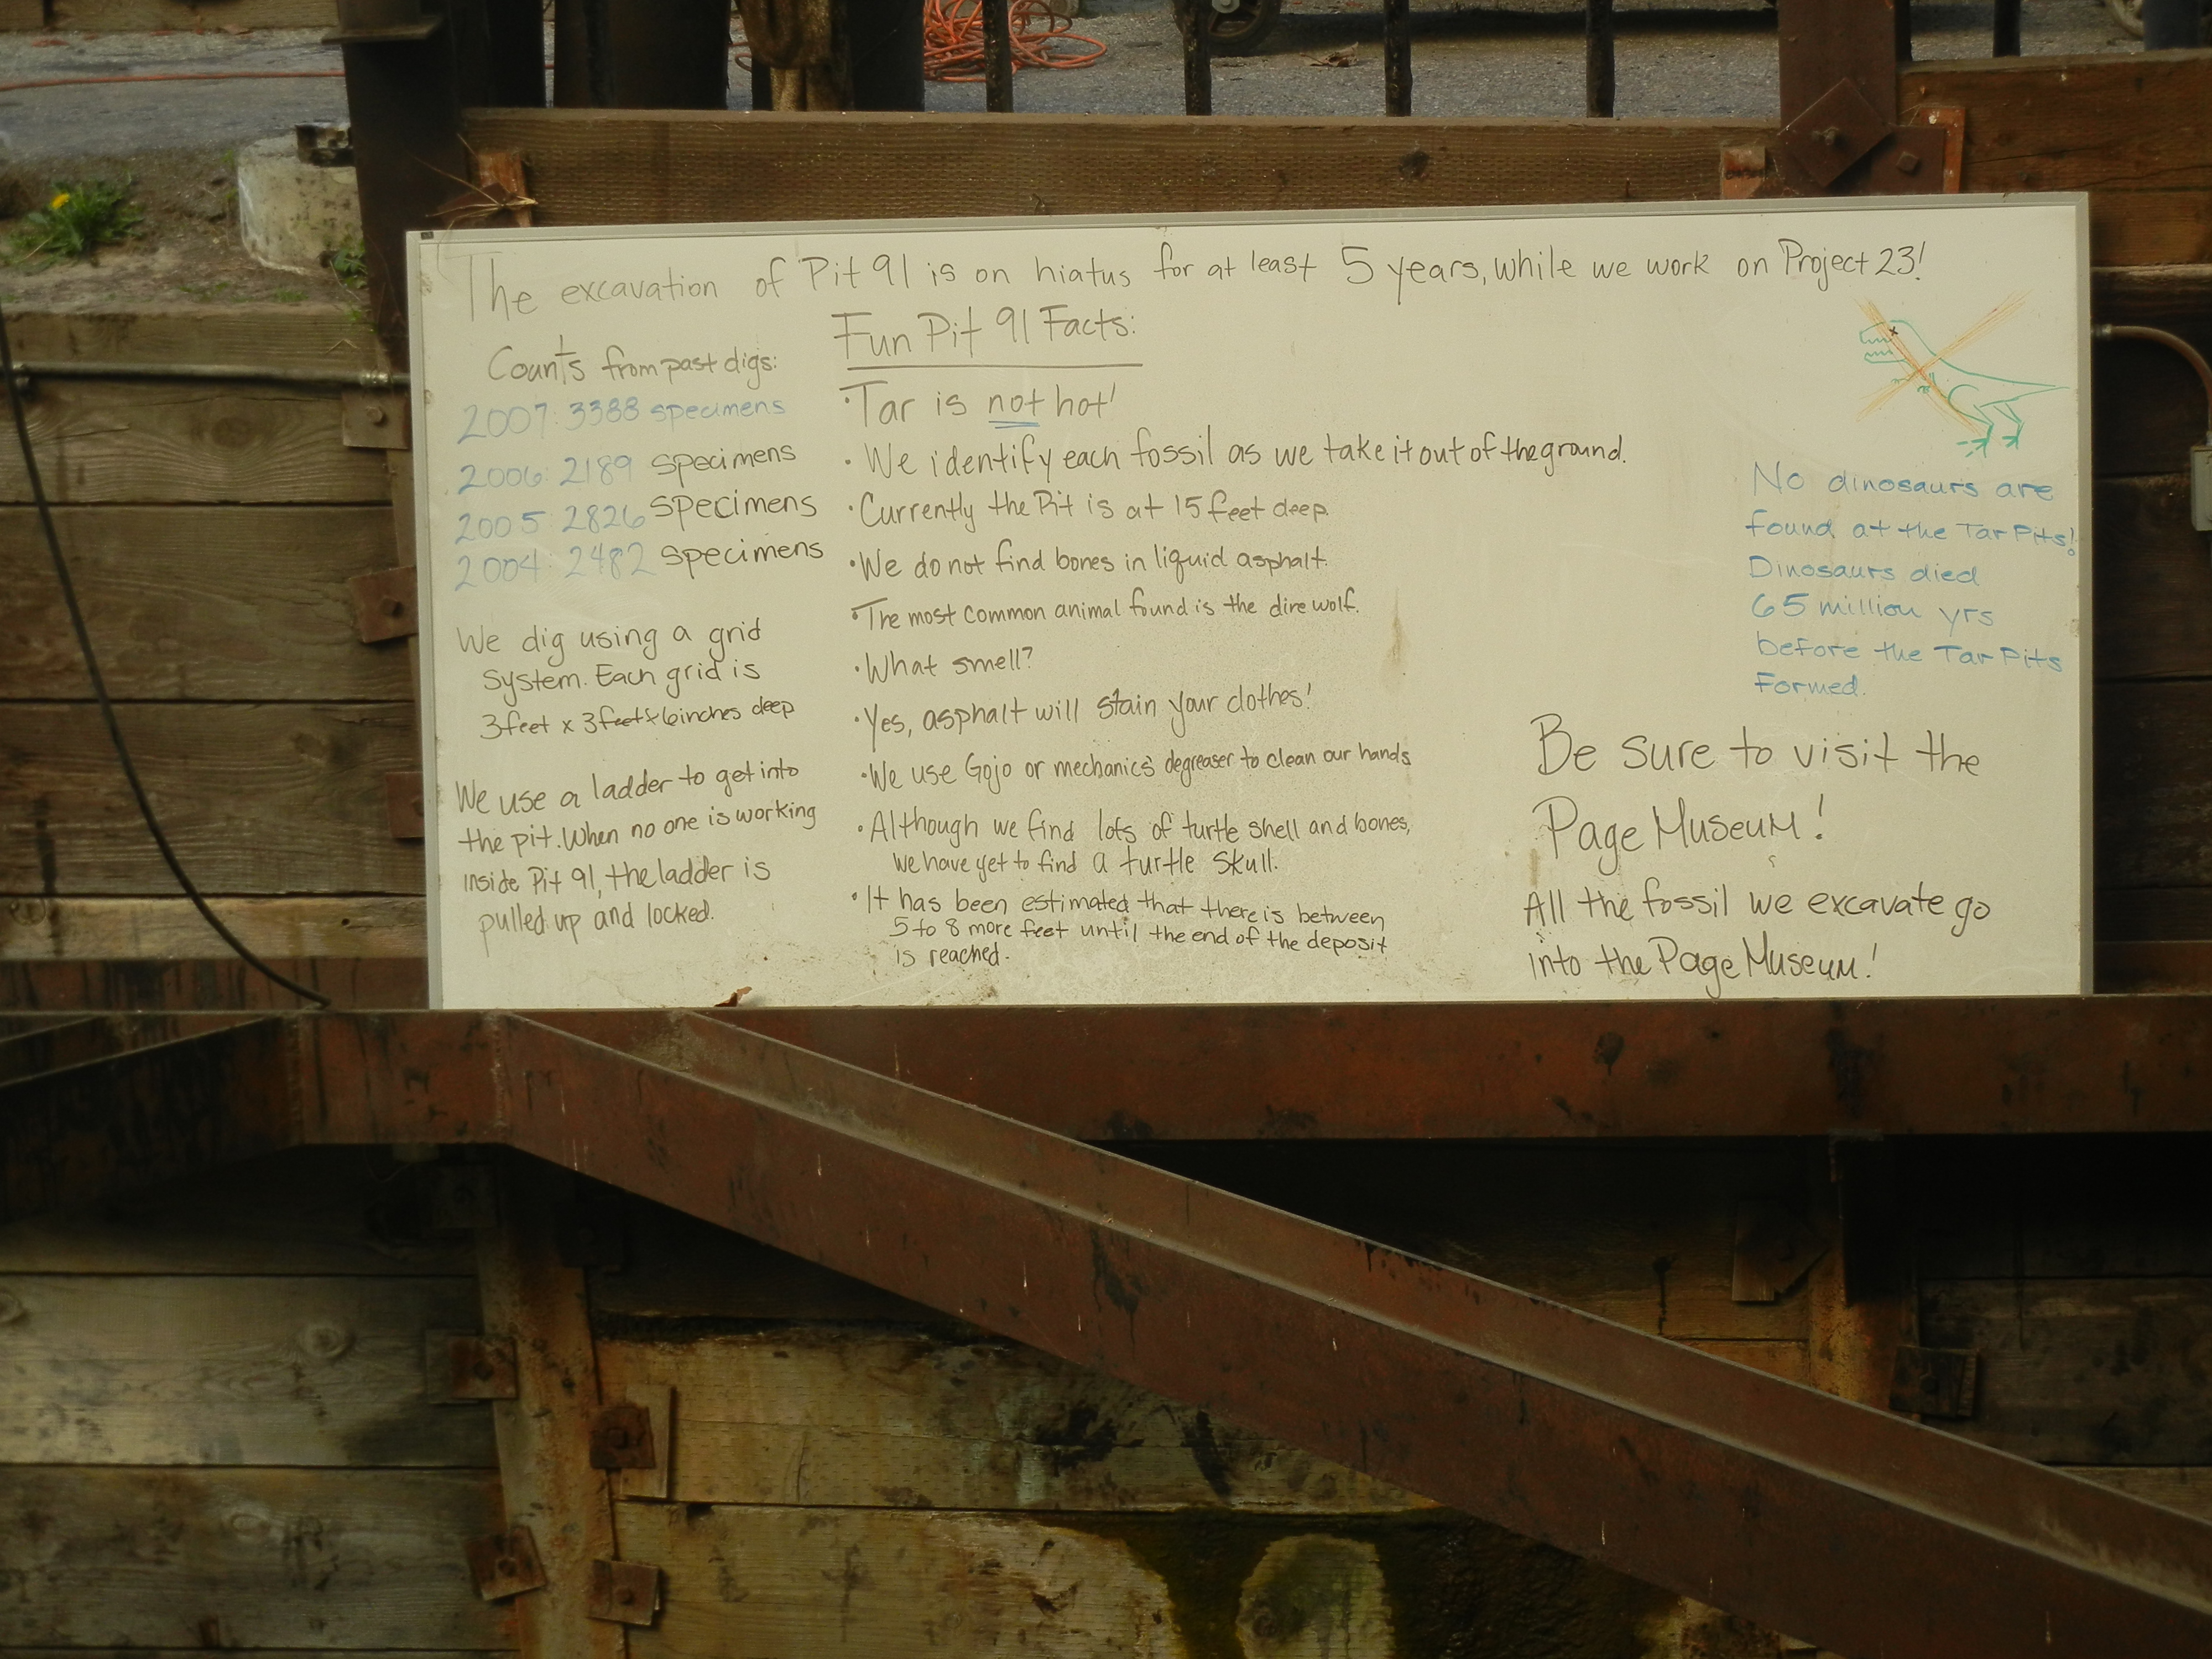 The excavation of Pit 91 is on hiatus for at least 5 years, while we work on Project 23!
Counts from past digs:
2007: 3388 specimens
2006: 2189 specimens
2005: 2826 specimens
2004: 2482 specimens
We dig using a grid
system. Each grid is
3 feet x 3 feet x 6 inches deep
We use a ladder to get into
the pit. When no one is working
inside Pit 91, the ladder is
pulled up and locked.
Fun Pit 91 Facts:
· Tar is not hot!
· We identify each fossil as we take it out of the ground.
· Currently the Pit is at 15 feet deep.
· We do not find bones in liquid asphalt.
· The most common animal found is the dire wolf.
· What smell?
· Yes, asphalt will stain your clothes!
· We use Gojo or mechanic's degreaser to clean our hands.
· Although we find lots of turtle shell and bones,
we have yet to find a turtle skull.
· It has been estimated that there is between
5 to 8 more feet until the end of the deposit
is reached.
No dinosaurs are
found at the Tar Pits!
Dinosaurs died
65 million yrs
before the Tar Pits
formed.
Be sure to visit the
Page Museum!
All the fossil we excavate go
into the Page Museum!